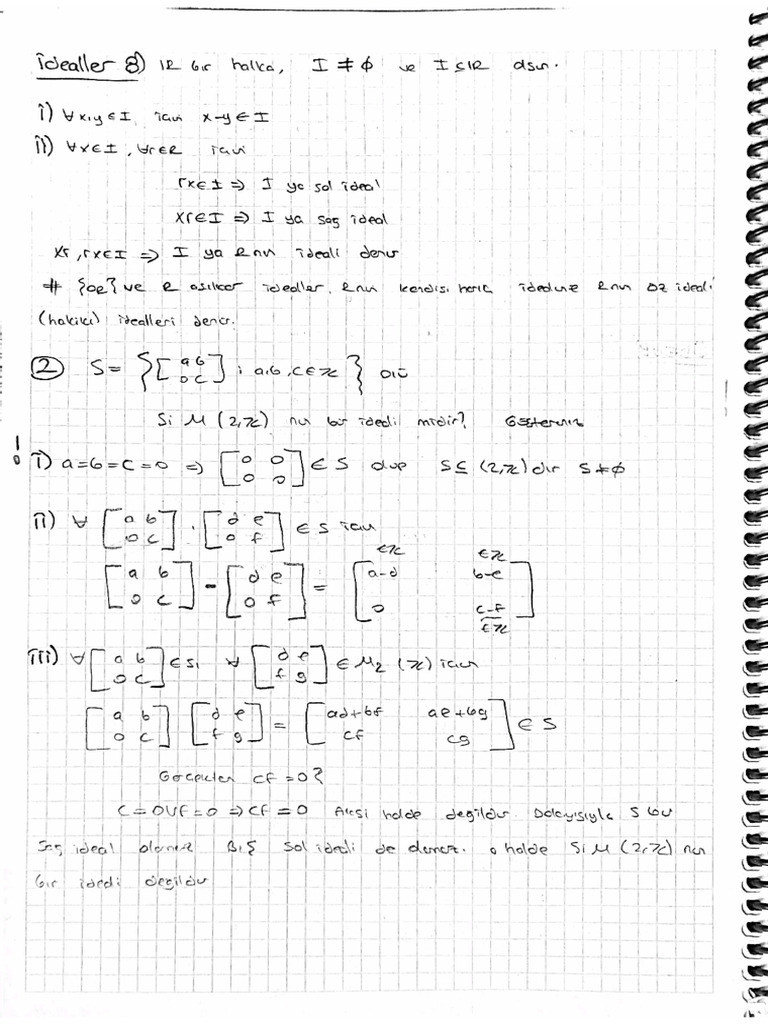 idealler 8) IR bir halka, I ≠ ∅ ve I ⊆ IR olsun.
i) ∀x,y ∈ I için x-y ∈ I
ii) ∀x∈I, ∀r∈R için
rx∈I => I ya sol ideal
xr∈I => I ya sağ ideal
xr, rx∈I => I ya R nin ideali denir
# {0R} ve R aşikar idealler. R nin kendisi hariç idealine R nin öz ideali
(hakiki) idealleri denir.
② S = { [a b; 0 c] : a,b,c∈ℤ }
S, M(2,ℤ) nin bir ideali midir? Gösteriniz
i) a=b=c=0 => [0 0; 0 0] ∈ S olup S⊆ (2,ℤ) dir S≠∅
ii) ∀ [a b; 0 c] , [d e; 0 f] ∈ S için
[a b; 0 c] - [d e; 0 f] = [a-d b-e; 0 c-f] ∈ℤ ∈ℤ ∈ℤ
iii) ∀ [a b; 0 c] ∈ S, ∀ [d e; f g] ∈ M₂ (ℤ) için
[a b; 0 c] [d e; f g] = [ad+bf ae+bg; cf cg] ∈ S
Gerçekten cf = 0?
c=0 ∨ f=0 => cf=0 Aksi halde değildir. Dolayısıyla S bir
sağ ideal olamaz sol ideali de denmez. o halde S, M(2,ℤ) nin
bir ideali değildir